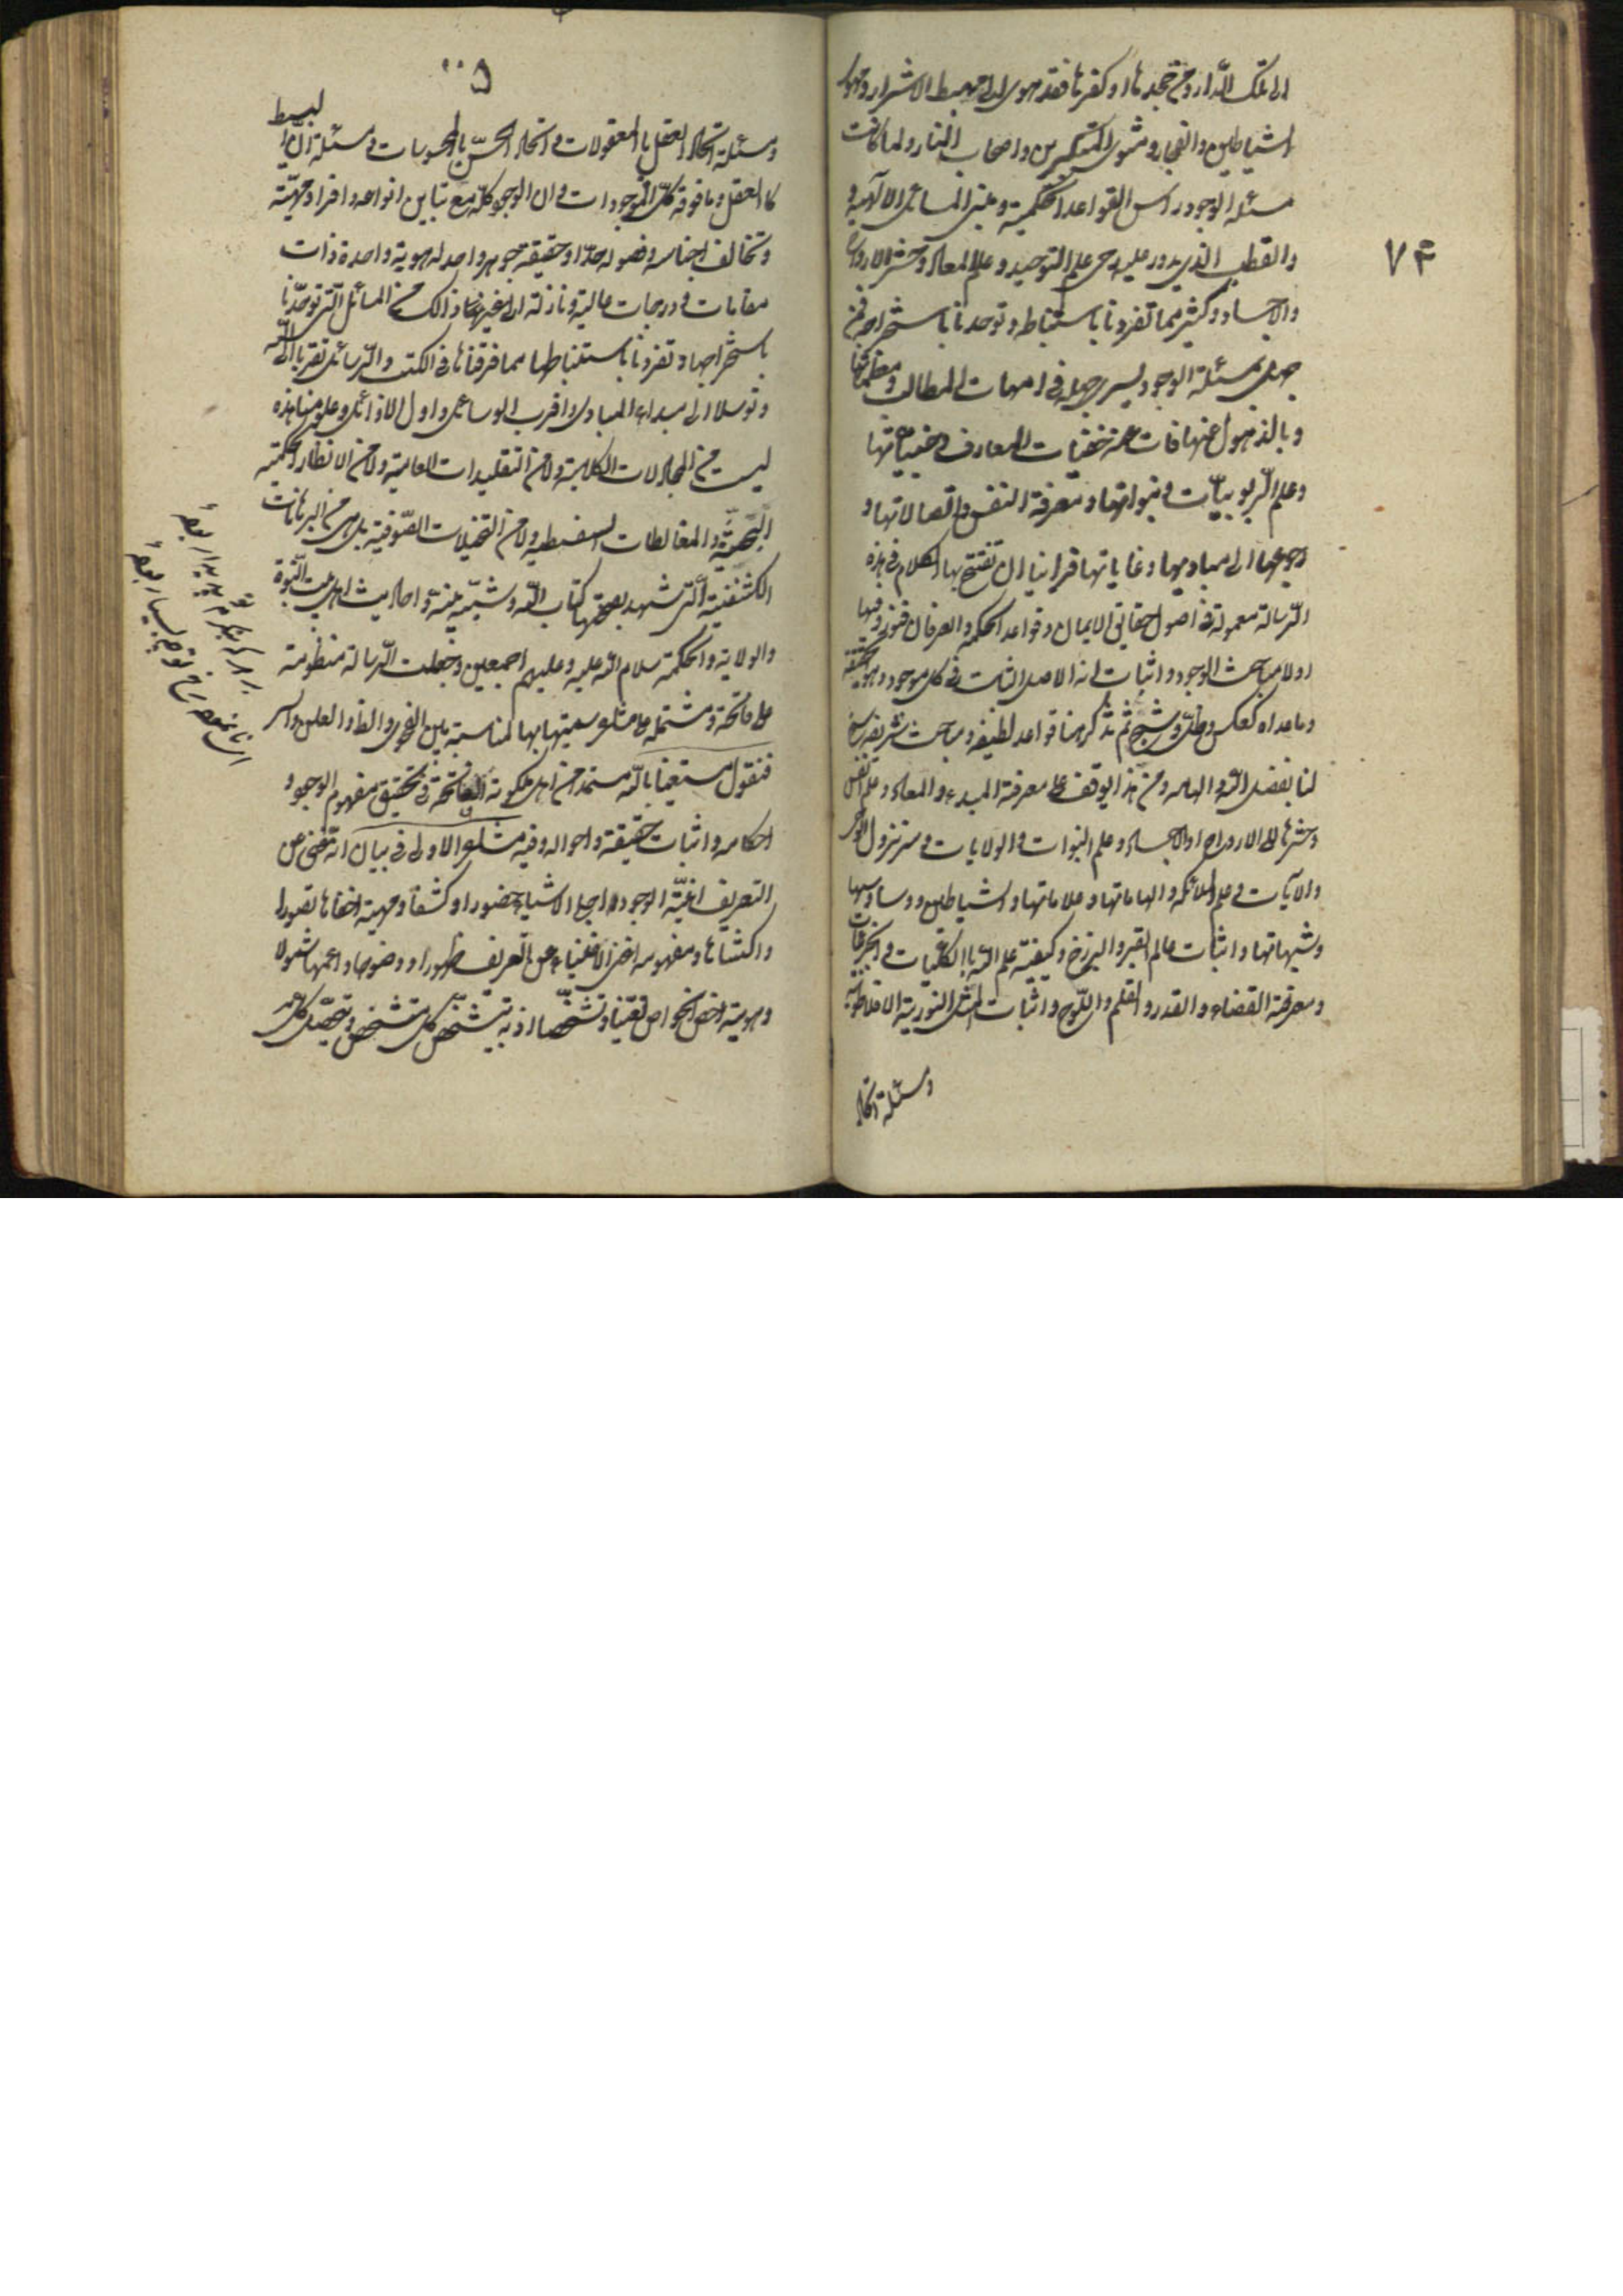 الى تلك الدار ومن جحدها او كفرها فقد هوى الى مهبط الاشرار ومهوى
الشياطين والفجار ومثوى المتكبرين واصحاب النار ولما كانت
مسئلة الوجود راس القواعد الحكمية ومبنى المسائل الالهية و
والقطب الذي يدور عليه رحى علم التوحيد وعلم المعاد وحشر الارواح
والاجساد وكثير مما تفردنا باستنباطه وتوحدنا باستخراجه فمن
جهل بمسئلة الوجود يسرى جهله في امهات المطالب ومعظماتها
وبالذهول عنها فات عنه خفيات المعارف وخبيئاتها
وعلم الربوبيات ونبواتها ومعرفة النفس واتصالاتها و
رجوعها الى مباديها وغاياتها فراينا ان نفتتح بها الكلام في هذه
الرسالة المعمولة في اصول حقائق الايمان وقواعد الحكمة والعرفان فنورد فيها
اولا مباحث الوجود واثبات انه الاصل الثابت في كل موجود وهو الحقيقة
وما عداه كعكس وظل وشبح ثم نذكر هنا قواعد لطيفة ومباحث شريفة سنح
لنا بفضل الله والهامه ومن هذا يوقف على معرفة المبدء والمعاد وعلم النفس
وحشرها الى الارواح والاجساد وعلم النبوات والولايات وسر نزول الوحى
والآيات وعلم الملائكة والهاماتها وعلاماتها والشياطين ووساوسها
وشبهاتها واثبات عالم القبر والبرزخ وكيفية علم الله بالكليات والجزئيات
ومعرفة القضاء والقدر والقلم واللوح واثبات المثل النورية الافلاطونية
ومسئلة اتحاد
٧٤
ومسئلة اتحاد العقل بالمعقولات واتحاد الحس بالمحسوسات ومسئلة ان البسيط
كالعقل وما فوقه كل الموجودات وان الوجود كله مع تباين انواعه وافراده مهية
وتخالف اجناسه وفصوله حدا وحقيقة جوهر واحد له هوية واحدة ذات
مقامات ودرجات عالية ونازلة الى غيرها ذلك من المسائل التى توحدنا
باستخراجها وتفردنا باستنباطها مما فرقناها في الكتب والرسائل تقربا الى الله
وتوسلا الى مبداء المبادى واقرب الوسائل واول الاوائل وعلومنا هذه
ليست من المجادلات الكلامية ولا من التقليدات العامية ولا من الانظار الحكمية
البحثية والمغالطات السفسطية ولا من التخيلات الصوفية بل هي من البرهانات
الكشفية التى شهد بصحتها كتاب الله وسنة نبيه واحاديث اهل بيت النبوة
والولاية والحكمة سلام الله عليه وعليهم اجمعين وجعلت الرسالة منظومة
على فاتحة ومشتملة على مشاعر سميتها بها لمناسبة بين الفحوى والظاهر والعلن والسر
فنقول مستعينا بالله مستمدا من اهل ملكوته الفاتحة في تحقيق مفهوم الوجود و
احكامه واثبات حقيقته واحواله وفيه مشاعر الاولى في بيان انه غنى عن
التعريف انية الوجود اجلى الاشياء حضورا وكشفا ومهيته اخفاها تصورا
واكتناها ومفهومه اغنى الاشياء عن التعريف ظهورا ووضوحا واعمها شمولا
وهويته اخص الخواص تعينا وتشخصا اذ به يتشخص كل متشخص ويتحصل كل